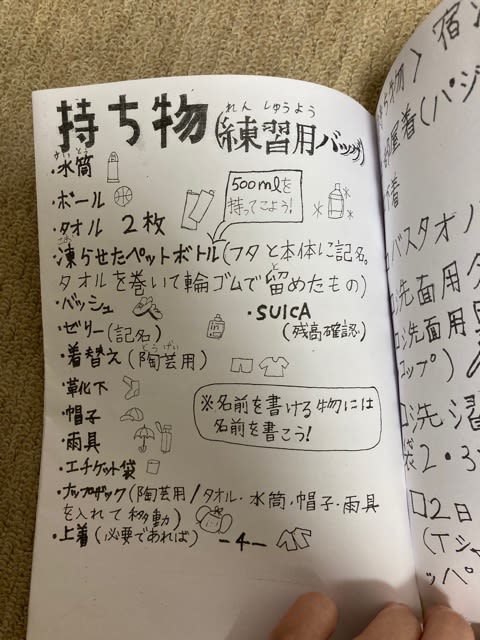 持ち物(練習用バッグ)
れんしゅうよう
すいとう
・水筒
・ボール
500mlを
持ってこよう!
・タオル 2枚
こお
・凍らせたペットボトル(フタと本体に記名。
と
タオルを巻いて輪ゴムで留めたもの)
・バッシュ
・SUICA
(残高確認)
・ゼリー(記名)
とうげい
・着替え(陶芸用)
・靴下
※名前を書ける物には
名前を書こう!
・帽子
・雨具
・エチケット袋
・ナップザック(陶芸用/タオル・水筒・帽子・雨具
を入れて移動)
・上着(必要であれば)
-4-
持ち物〉宿
部屋着(パジ
バスタオ
洗面用
洗面用具
コップ)
洗濯
袋2・3
□2日
(Tシ
ッパ